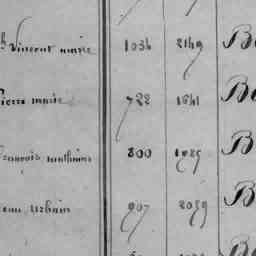 h Vincent marie 1034 2149 B
Pierre marie 722 1641 B
françois mathurin 800 1785 B
ean urbain 907 2059 B